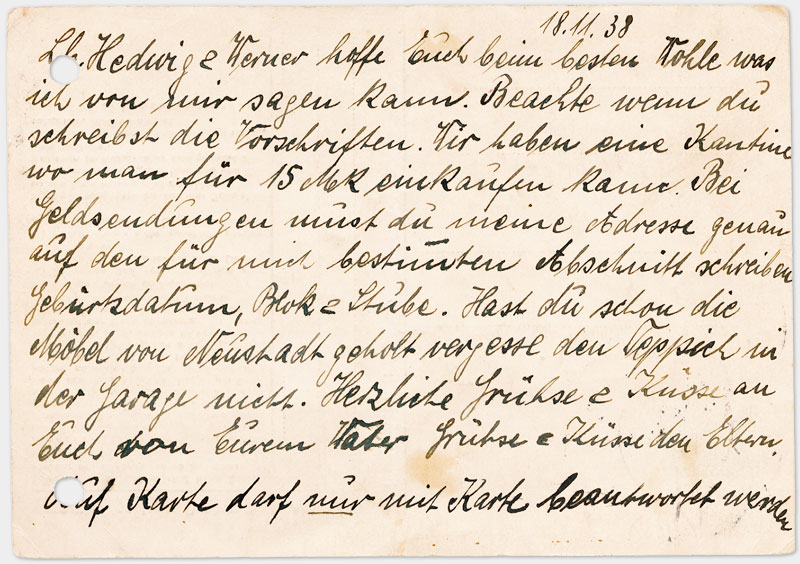 18.11.38
Lb. Hedwig & Werner hoffe Euch beim besten Wohle was
ich von mir sagen kann. Beachte wenn du
schreibst die Vorschriften. Wir haben eine Kantine
wo man für 15 Mk einkaufen kann. Bei
Geldsendungen must du meine Adresse genau
auf den für mich bestimten Abschnitt schreiben
Gebürtsdatum, Blok & Stube. Hast du schon die
Möbel von Neustadt geholt vergesse den Teppich in
der Garage nicht. Herzliche Grühse & Küsse an
Euch von Eurem Vater Grühse & Küsse den Eltern.
Auf Karte darf nur mit Karte beantwortet werden